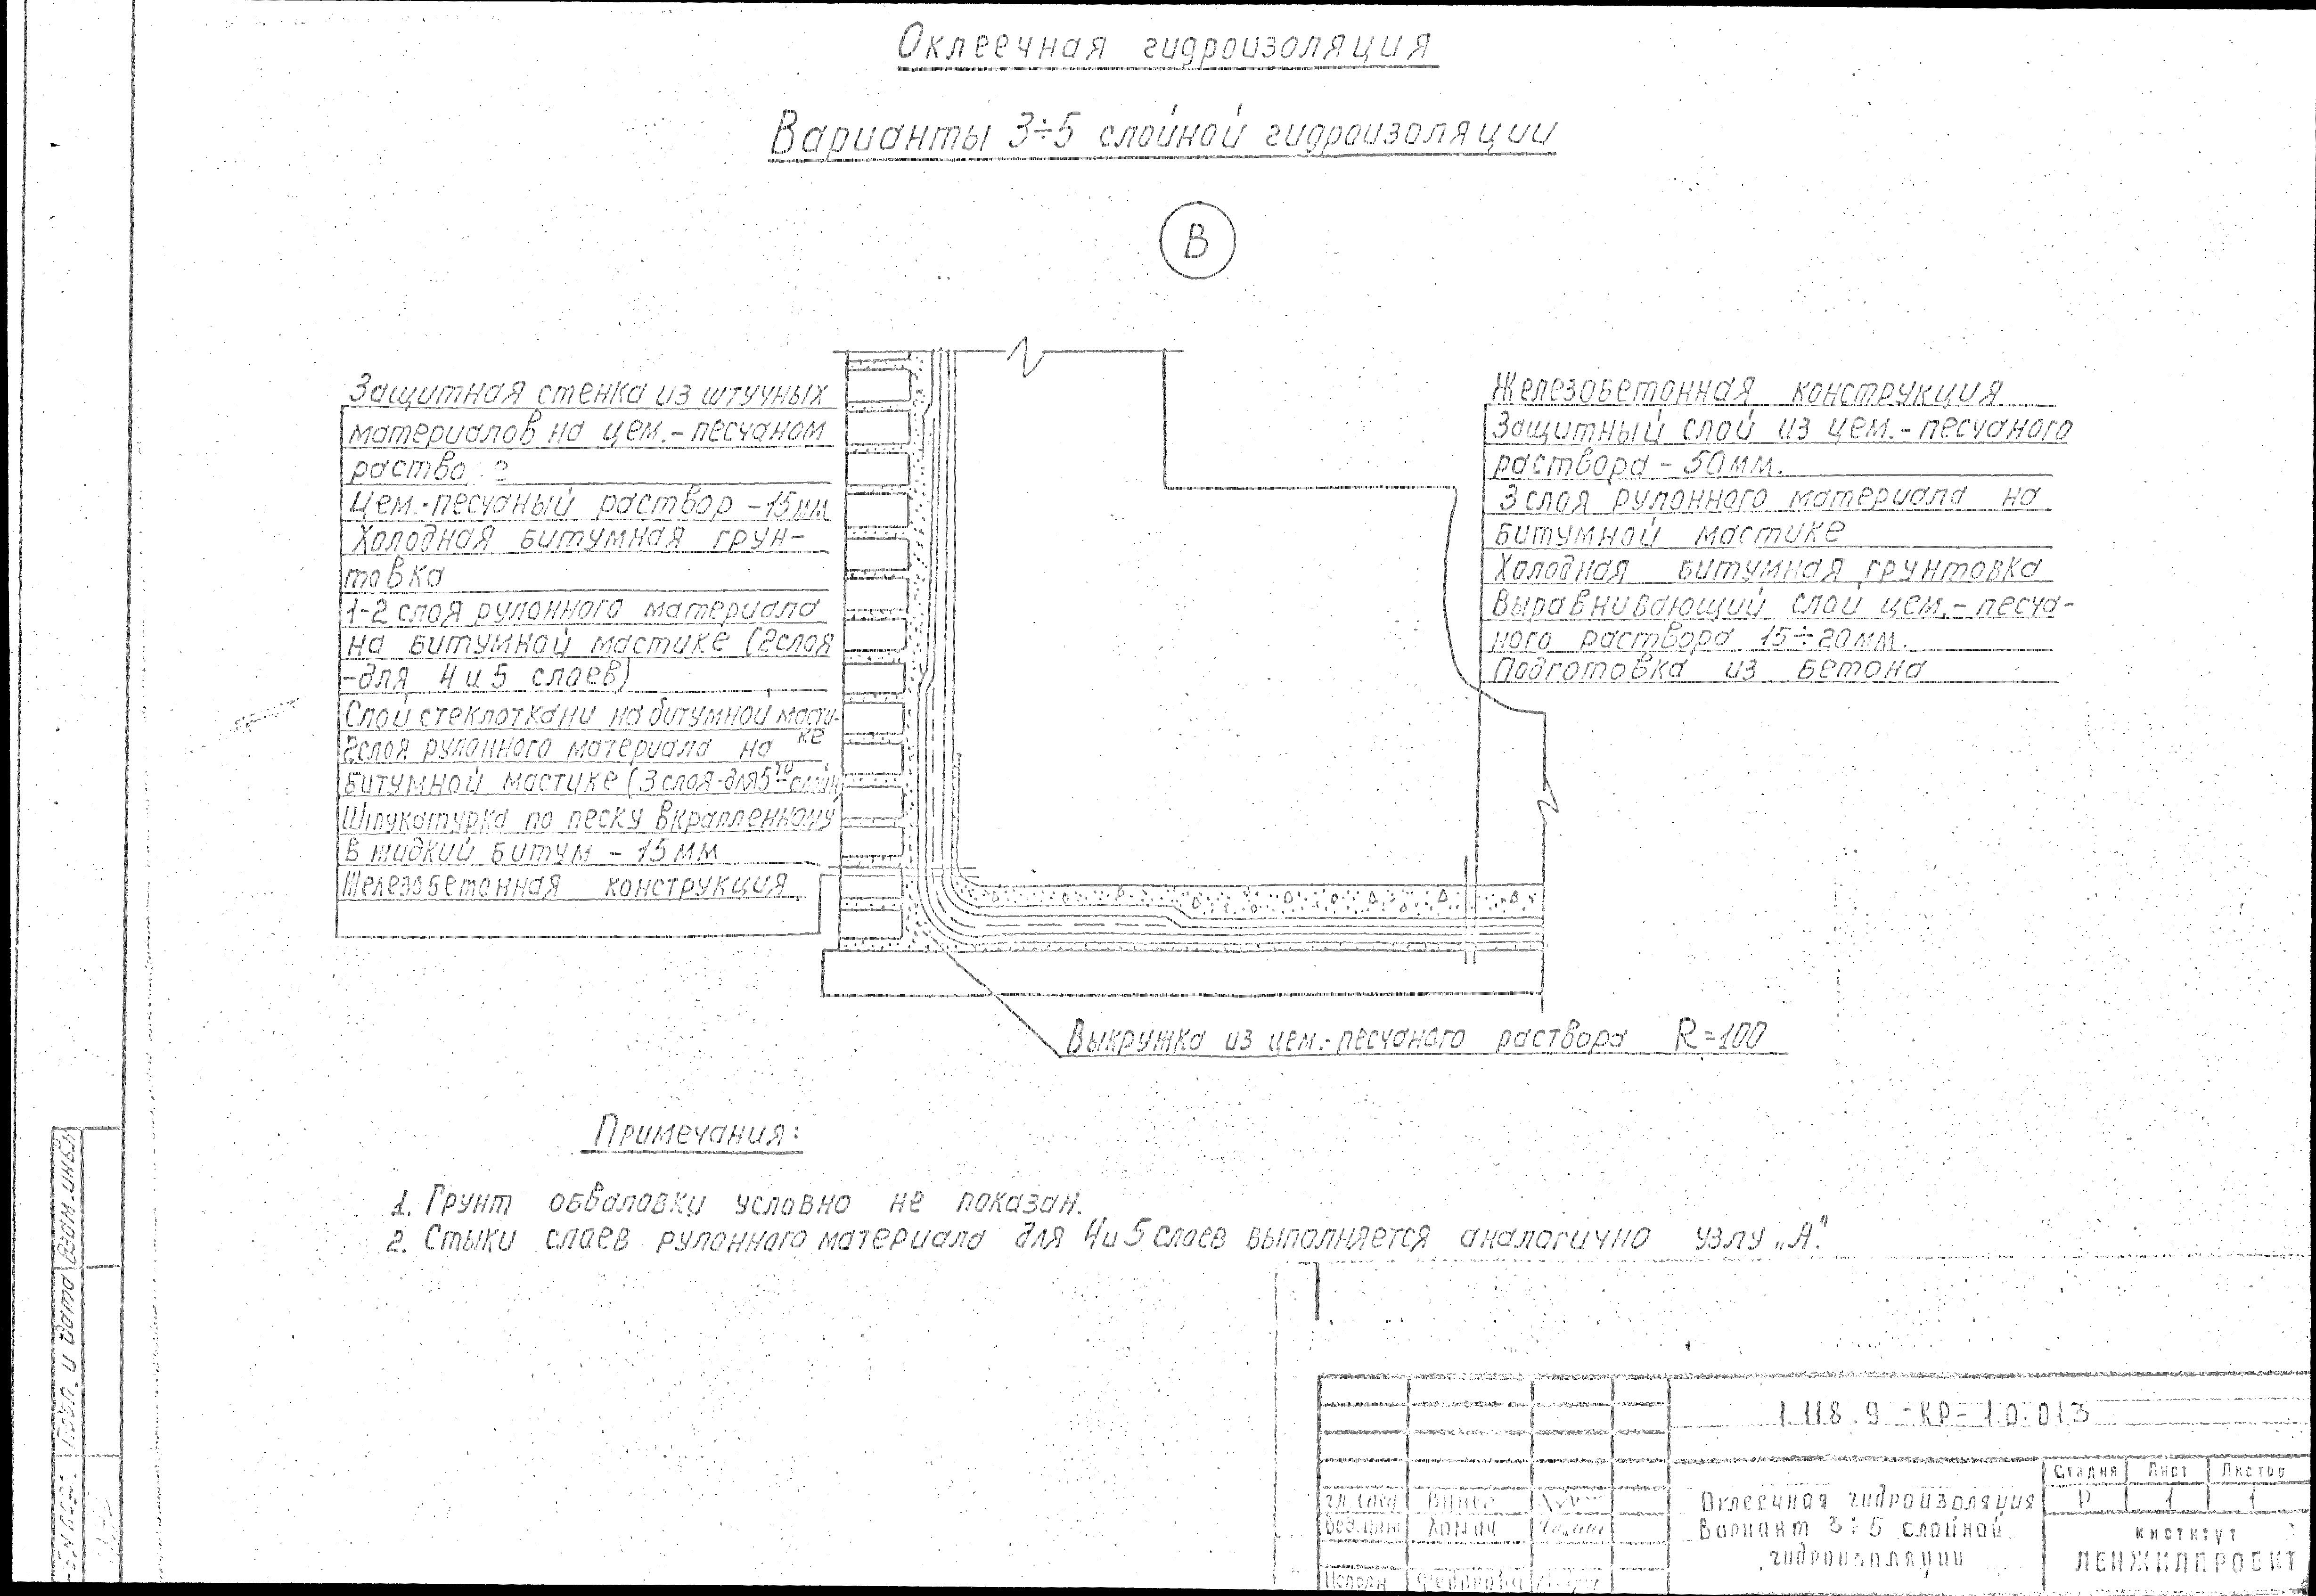 Оклеечная гидроизоляция
Варианты 3÷5 слойной гидроизоляции
В
Защитная стенка из штучных
материалов на цем.-песчаном
Цем.-песчаный раствор -15мм
Холодная битумная грун-
товка
1-2 слоя рулонного материала
на битумной мастике (2слоя
-для 4и5 слоев)
Слой стеклоткани на битумной масти-
ке
2слоя рулонного материала на
битумной мастике (3слоя-для5
Штукатурка по песку вкрапленному
в жидкий битум - 15мм
Железобетонная конструкция
Железобетонная конструкция
Защитный слой из цем.-песчаного
раствора - 50мм.
3слоя рулонного материала на
битумной мастике
Холодная битумная грунтовка
Выравнивающий слой цем.-песча-
ного раствора 15÷20мм.
Подготовка из бетона
Выкружка из цем.-песчаного раствора R=100
Примечания:
1. Грунт обваловки условно не показан.
2. Стыки слоев рулонного материала для 4и5слоев выполняется аналогично узлу „А".
Подп. и дата
Взам.инв.
1.118.9-КР-1.0.013
Оклеечная гидроизоляция
Вариант 3÷5 слойной
гидроизоляции
Стадия Лист Листов
Р 1 1
институт
ЛЕНЖИЛПРОЕКТ
Гл. спец
Вед.инж
Исполн